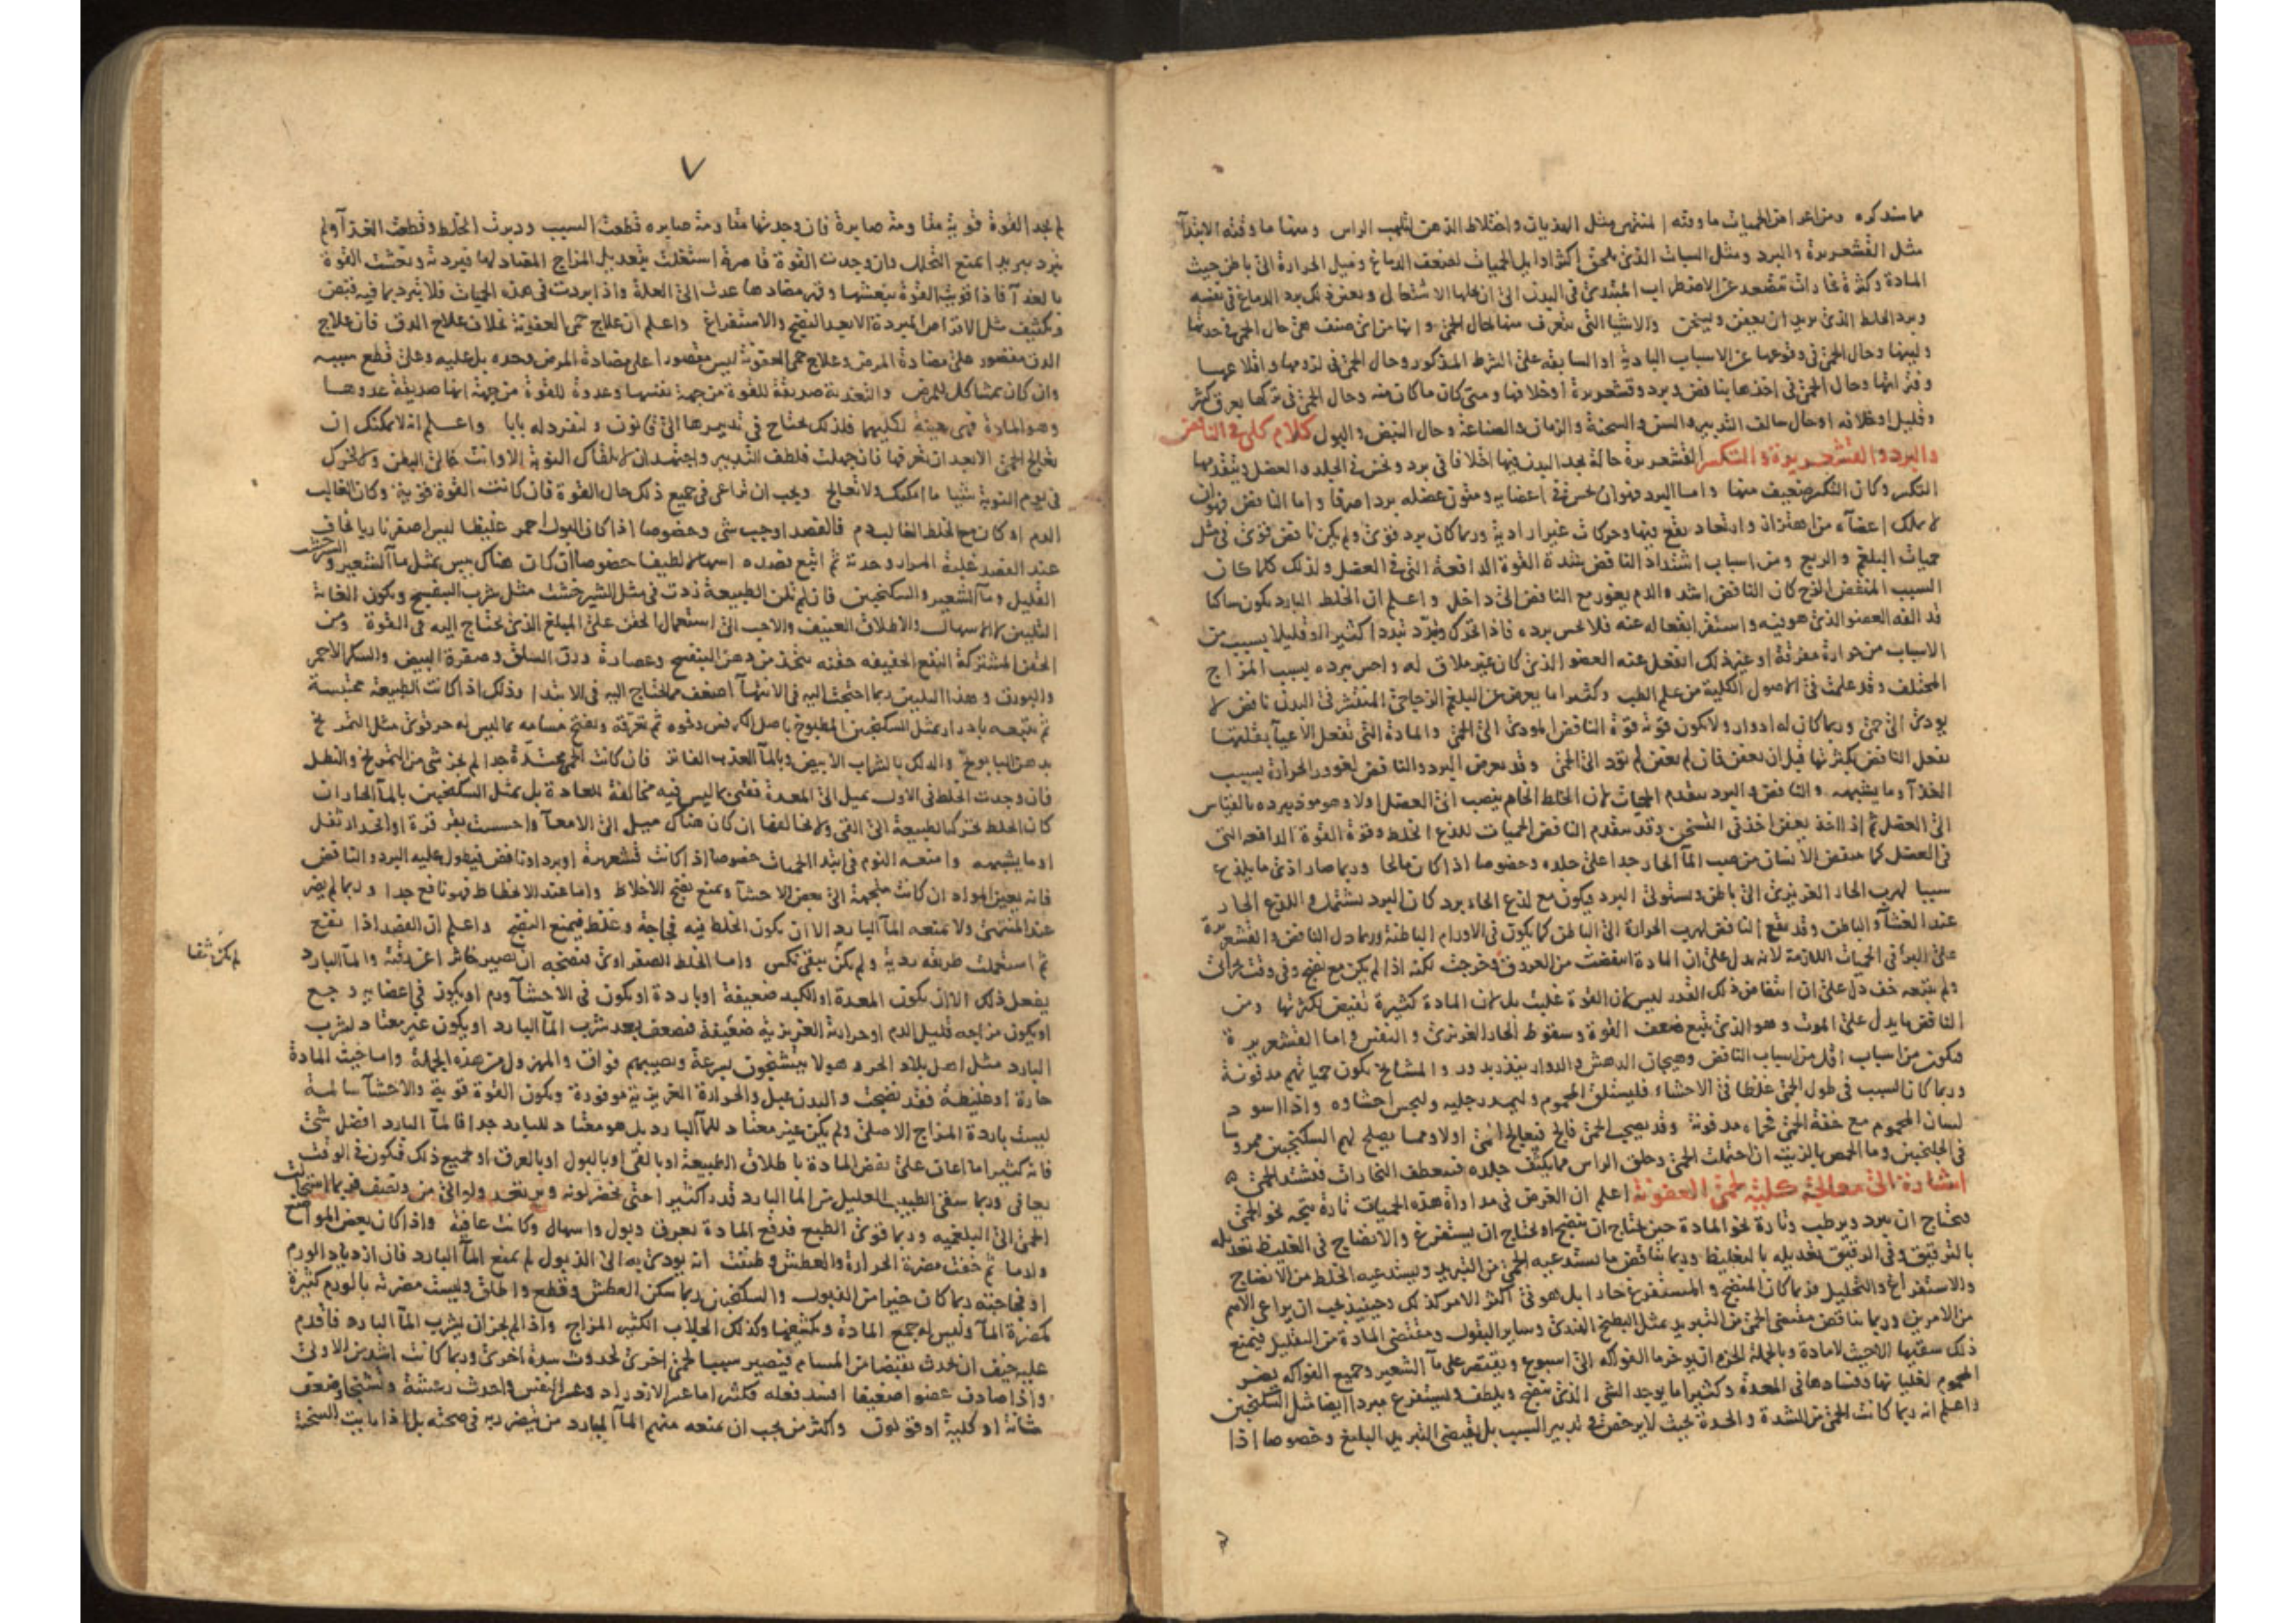 ما سنذكره ومن اعراض الحميات ما وقته المنتهى مثل الهذيان واختلاط الذهن لتلهب الراس ومنها ما وقته الابتدآ
مثل القشعريرة والبرد ومثل السبات الذى يلحق اكثر اوايل الحميات لضعف الدماغ وميل الحرارة الى باطن حيث
المادة وكثرة بخارات تتصعد عن الاضطراب المبتدى فى البدن الى ان يحللها الاشتعال ويعين ذلك برد الدماغ فى نفسه
وبرد الخلط الذى يريد ان يعفن ويسخن والاشيا التى يتعرف منها حال الحمى وانها من اى صنف هى حال الحمى فى حدتها
ولينها وحال الحمى فى وقوعها عن الاسباب البادية او السابقة على الشرط المذكور وحال الحمى فى لزومها واقلاعها
وفتراتها وحال الحمى فى اخذها بنافض وبرد وقشعريرة او خلافها ومتى كان ما كان منه وحال الحمى فى تركها بعرق كثير
وقليل او خلافه او حال سالف التدبير والسن والسحنة والزمان والصناعة وحال النبض والبول كلام كلى فى النافض
والبرد والقشعريرة والتكسر القشعريرة حالة يجد البدن فيها اختلافا فى برد ونخس فى الجلد والعضل ويتقدمها
التكسر وكان التكسر ضعيف منها واما البرد فهو ان يحس فى اعضايه ومتون عضله بردا صرفا واما النافض فهو ان
لا يملك اعضآه من اهتزاز وارتعاد يقع فيها وحركات غير ارادية وربما كان برد قوى ولم يكن نافض قوى فى مثل
حميات البلغم والربع ومن اسباب اشتداد النافض شدة القوة الدافعة التى فى العضل ولذلك كلما كان
السبب المنفض الزج كان النافض اشد والدم يغور مع النافض الى داخل واعلم ان الخلط البارد يكون ساكنا
قد الفه العضو الذى هو فيه واستقر انفعاله عنه فلا يحس برده فاذا تحرك وتبدد تبددا كثيرا او قليلا بسبب من
الاسباب من حرارة مفرقة او غير ذلك انفعل عنه العضو الذى كان غير ملاق له واحس ببرده بسبب المزاج
المختلف وقد علمت فى الاصول الكلية من علم الطب وكثيرا ما يعرض عن البلغم الزجاجى المنتشر فى البدن نافض لا
يودى الى حمى وربما كان له ادوار ولا يكون قوته قوة النافض المودى الى الحمى والمادة التى تفعل الاعيآ بقلتها
تفعل النافض بكثرتها قبل ان تعفن فان لم تعفن لم تود الى الحمى وقد يعرض البرد والنافض لغوور الحرارة بسبب
الغذآ وما يشبهه والنافض والبرد يتقدم الحميات لان الخلط الخام ينصب الى العضل اولا وهو موذ ببرده بالقياس
الى العضل ثم اذا اخذ يعفن اخذ فى التسخن وقد يتقدم النافض الحميات للذع الخلط وقوة القوة الدافعة التى
فى العضل كما ينتفض الانسان من صب المآ الحار جدا على جلده وخصوصا اذا كان مالحا وربما صار اذى ما يلذع
سببا لهرب الحار الغريزى الى باطن ويستولى البرد فيكون مع لذع الحار برد كان البرد يشتمل واللذع الحار
عند الغشآ والباطن وقد يقع النافض لهرب الحرارة الى الباطن كما يكون فى الاورام الباطنة وربما دل النافض والقشعريرة
على البرء فى الحميات اللازمة لانه يدل على ان المادة انتفضت من العروق وخرجت لكنه اذا لم يكن مع نضج وفى وقت بحران
ولم يتبعه خف دل على ان انتفاض ذلك القدر ليس لان القوة غلبت بل لان المادة كثيرة تفيض لكثرتها ومن
النافض ما يدل على الموت وهو الذى يتبع ضعف القوة وسقوط الحار الغريزى والنفس واما القشعريرة
فيكون من اسباب اقل من اسباب النافض وهيجان الدهش والدوار ينذر بدور والمشايخ يكون حمياتهم مدفونة
وربما كان السبب فى طول الحمى غلظا فى الاحشاء فليستلق المحموم وليمدد رجليه وليحس احشاوه واذا اسود
لسان المحموم مع خفة الحمى فحماه مدفونة وقد يصحب الحمى فالج فيعالج الحمى اولا ومما يصلح لهم السكنجبين ممروسا
فى الجلنجبين وما الحمص بالزيت ان احتملت الحمى وحلق الراس مما يكثف جلده فينعطف البخارات فيشتد الحمى
اشارة الى معالجة كلية لحمى العفونة اعلم ان الغرض فى مداواة هذه الحميات تارة يتجه نحو الحمى
فتحتاج ان يبرد ويرطب وتارة نحو المادة حين يحتاج ان ينضج او يحتاج ان يستفرغ والانضاج فى الغليظ تعديله
بالترقيق وفى الرقيق تعديله بالتغليظ وربما تناقض ما يستدعيه الحمى من التبريد ويستدعيه الخلط من الانضاج
والاستفراغ والتحليل فربما كان المنضج والمستفرغ حارا بل هو فى اكثر الامر كذلك وحينئذ يجب ان يراعى الاهم
من الامرين وربما تناقض مقتضى الحمى من التبريد بمثل البطيخ الهندى وساير البقول ومقتضى المادة من التقليل فيمنع
ذلك سقيها الا حيث لا مادة وبالجملة الحزم ان يوخر ما الفواكه الى اسبوع ويقتصر على مآ الشعير وجميع الفواكه يضر
المحموم لغليانها وفسادها فى المعدة وكثيرا ما يوجد الشى الذى ينضج ويلطف ويستفرغ مبردا ايضا مثل السكنجبين
واعلم انه ربما كانت الحمى من الشدة والحدة بحيث لا يرخص فى تدبير السبب بل يقتضى التبريد البليغ وخصوصا اذا
٧
لم يجد القوة قوية معا ومنه صابرة فان وجدتها معا ومنه صابره قطعت السبب ودبرت الخلط وقطعت الغذآ ولم
يبرد تبريدا يمنع التحلل وان وجدت القوة قاصرة استغلت بتعديل المزاج المضاد لها فبردته ونعشت القوة
بالغذآ فاذا قويت القوة بنعشها وقهر مضادها عدت الى العلة واذا بردت فى هذه الحميات فلا تبرد بما فيه قبض
وتكثيف مثل الاقراص المبردة الا بعد النضج والاستفراغ واعلم ان علاج حمى العفونة بخلاف علاج الدق فان علاج
الدق مقصور على مضادة المرض وعلاج حمى العفونة ليس مقصورا على مضادة المرض وحده بل عليه وعلى قطع سببه
وان كان بمشاكل للمرض والتغذية صديقة للقوة من جهة نفسها وعدوة للقوة من جهة انها صديقة عدوها
وهو المادة فهى معينة لكليهما فلذلك يحتاج فى تدبيرها الى قانون ولنفرد له بابا واعلم انه لا يمكنك ان
تعالج الحمى الا بعد ان تعرفها فان جهلت فلطف التدبير واجتهد ان لا يلقاك النوبة الا وانت خالى البطن ولا تحرك
فى يوم النوبة شيا ما امكنك ولا تعالج ويجب ان تراعى فى جميع ذلك حال القوة فان كانت القوة قوية وكان الغالب
الدم او كان مع الخلط الغالب دم فالفصد اوجب شى وخصوصا اذا كان البول احمر غليظا ليس اصفر ناريا تخاف
عند الفصد غلبة المرار وحدته ثم اتبع فصده اسهالا لطيفا خصوصا ان كان هناك يبس بمثل مآ الشعير والشيرخشت
القليل ومآ الشعير والسكنجبين فان لم تلن الطبيعة زدت فى مثل الشيرخشت مثل شرب البنفسج ويكون الغاية
التليين لا الاسهال والاطلاق العنيف والاحب الى استعمال الحقن على المبلغ الذى تحتاج اليه فى القوة ومن
الحقن المشتركة النفع الخفيفه حقنه يتخذ من دهن البنفسج وعصارة ورق السلق وصفرة البيض والسكر الاحمر
والبورق وهذا التليين ربما احتجت اليه فى الانتهآ اضعف مما تحتاج اليه فى الابتدا وذلك اذا كانت الطبيعة محتبسة
ثم تتبعه بادرار بمثل السكنجبين المطبوخ باصل الكرفس ونحوه ثم تعرقه وتفتح مسامه بما ليس له حر قوى مثل التمريخ
بدهن البابونج والدلك بالشراب الابيض وبالمآ العذب الفاتر فان كانت الحمى محتدة جدا لم يجز شى من التمريخ والنطل
فان وجدت الخلط فى الاول يميل الى المعدة فقىء بما ليس فيه مخالفة للعادة بل بمثل السكنجبين بالمآ الحار ان
كان الخلط يحرك الطبيعة الى القى ولا تخالفها ان كان هناك ميل الى الامعآ واحسست بقرقرة او انحدار ثفل
او ما يشبهه وامنعه النوم فى ابتدا الحميات خصوصا اذا كانت قشعريرة او برد او نافض فيطول عليه البرد والنافض
فانه يعين المواد ان كانت متجهة الى بعض الاحشآ ويمنع نضج الاخلاط واما عند الانحطاط فهو نافع جدا وربما لم يضر
عند المنتهى ولا تمنعه المآ البارد الا ان يكون الخلط فيه فجاجة وغلظ فيمنع النضج واعلم ان الفصد اذا نفع
ثم استعملت طريقه ردية ولم يكن ينقى نكس واما الخلط الصفراوى فنضجه ان يصير خاثرا عن رقته والمآ البارد
لم يكن نقا
يفعل ذلك الا ان يكون المعدة او الكبد ضعيفة او باردة او يكون فى الاحشآ ورم او يكون فى اعضايه وجع
او يكون مزاجه قليل الدم او حرارته الغريزية ضعيفة فتضعف بعد شرب المآ البارد او يكون غير معتاد لشرب
البارد مثل اهل بلاد الحر وهولا يتشنجون بسرعة ويصيبهم فواق والمهزول من هذه الجملة واما حيث المادة
حارة او غليظة فقد نضجت والبدن عبل والحرارة الغريزية موفورة ويكون القوة قوية والاحشآ سالمة
ليست باردة المزاج الاصلى ولم يكن غير معتاد للمآ البارد بل هو معتاد للبارد جدا فالمآ البارد افضل شى
فانه كثيرا ما اعان على نفض المادة باطلاق الطبيعة او بالقى او بالبول او بالعرق او جميع ذلك فيكون فى الوقت
يعافى وربما سقى الطبيب العليل من المآ البارد قدرا كثيرا حتى يخضر لونه ويرتعد ولو الى من ونصف فربما استحالت
الحمى الى البلغميه وربما قوى الطبع فدفع المادة بعرق وبول واسهال وكانت عافية واذا كان بعض المواضع
وارما ثم خفت مضرة الحرارة والعطش وظننت انه يودى به الى الذبول لم تمنع المآ البارد فان ازدياد الورم
او فجاجته ربما كان خيرا من الذبول والسكنجبين ربما سكن العطش وقطع واطلق وليست مضرته بالورم كثيرة
كمضرة المآ وليس له جمع المادة وتكثيفها وكذلك الجلاب الكثير المزاج واذا لم يجز ان يشرب المآ البارد فاقدم
عليه خيف ان يحدث تقبضا من المسام فيصير سببا لحمى اخرى لحدوث سدة اخرى وربما كانت اشد من الاولى
واذا صادف عضوا ضعيفا افسد فعله فكثيرا ما عسر الازدراد وعسر النفس واحدث رعشة وتشنجا وضعف
مثانة او كلية او قولون واكثر من يجب ان تمنعه منهم المآ البارد من يتضرر به فى صحته بل اذا رايت السحنة